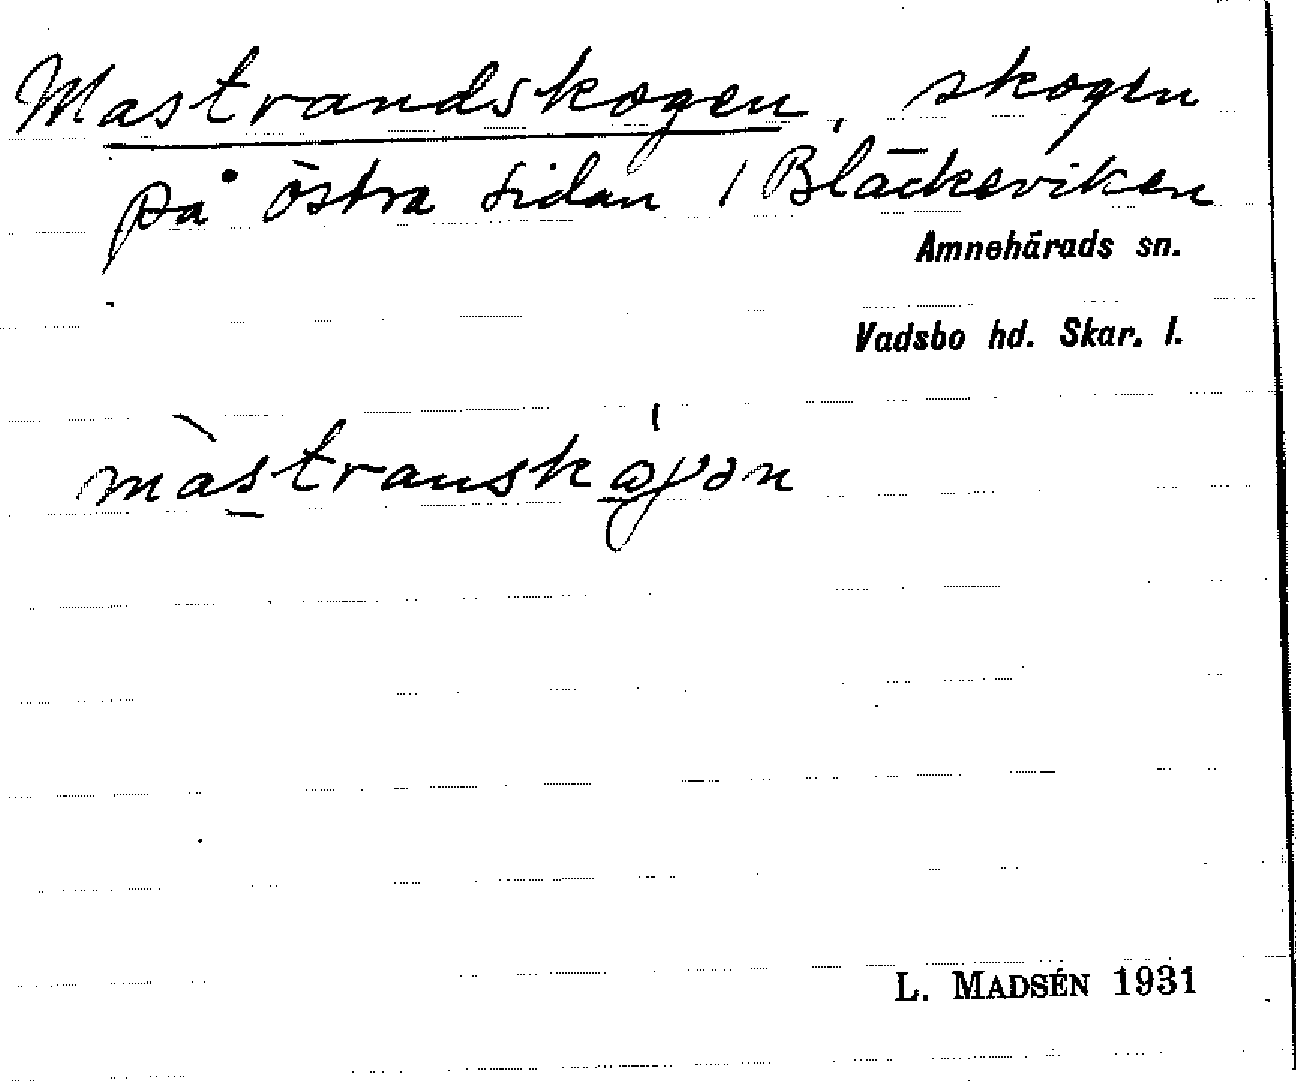 Mastrandskogen, skogen
på östra sidan i Bläckeviken
Amnehärads sn.
Vadsbo hd. Skar. l.
L. MADSÉN 1931